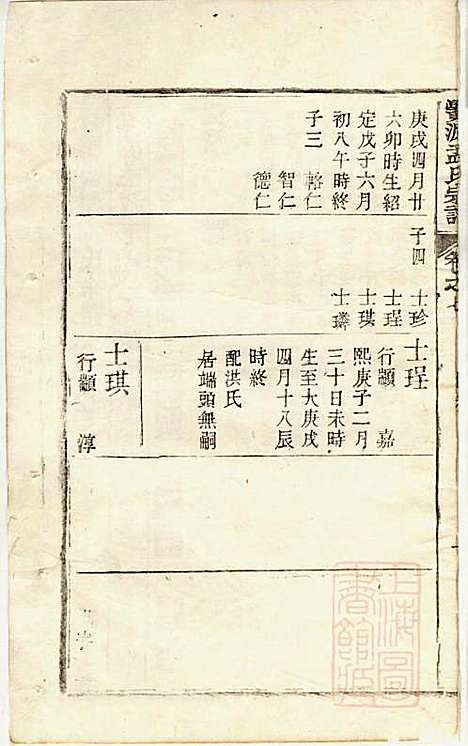 孟氏宗譜
卷之七
庚戌四月廿
六卯時生紹
定戊子六月
初八午時終
子三
輅仁
智仁
德仁
子四
士珍
士珵
士琪
士璘
士珵
行顓 嘉
熙庚子二月
三十日未時
生至大庚戌
四月十八辰
時終
配洪氏
居端頭無嗣
士琪
行顓 淳
上海圖
書館藏